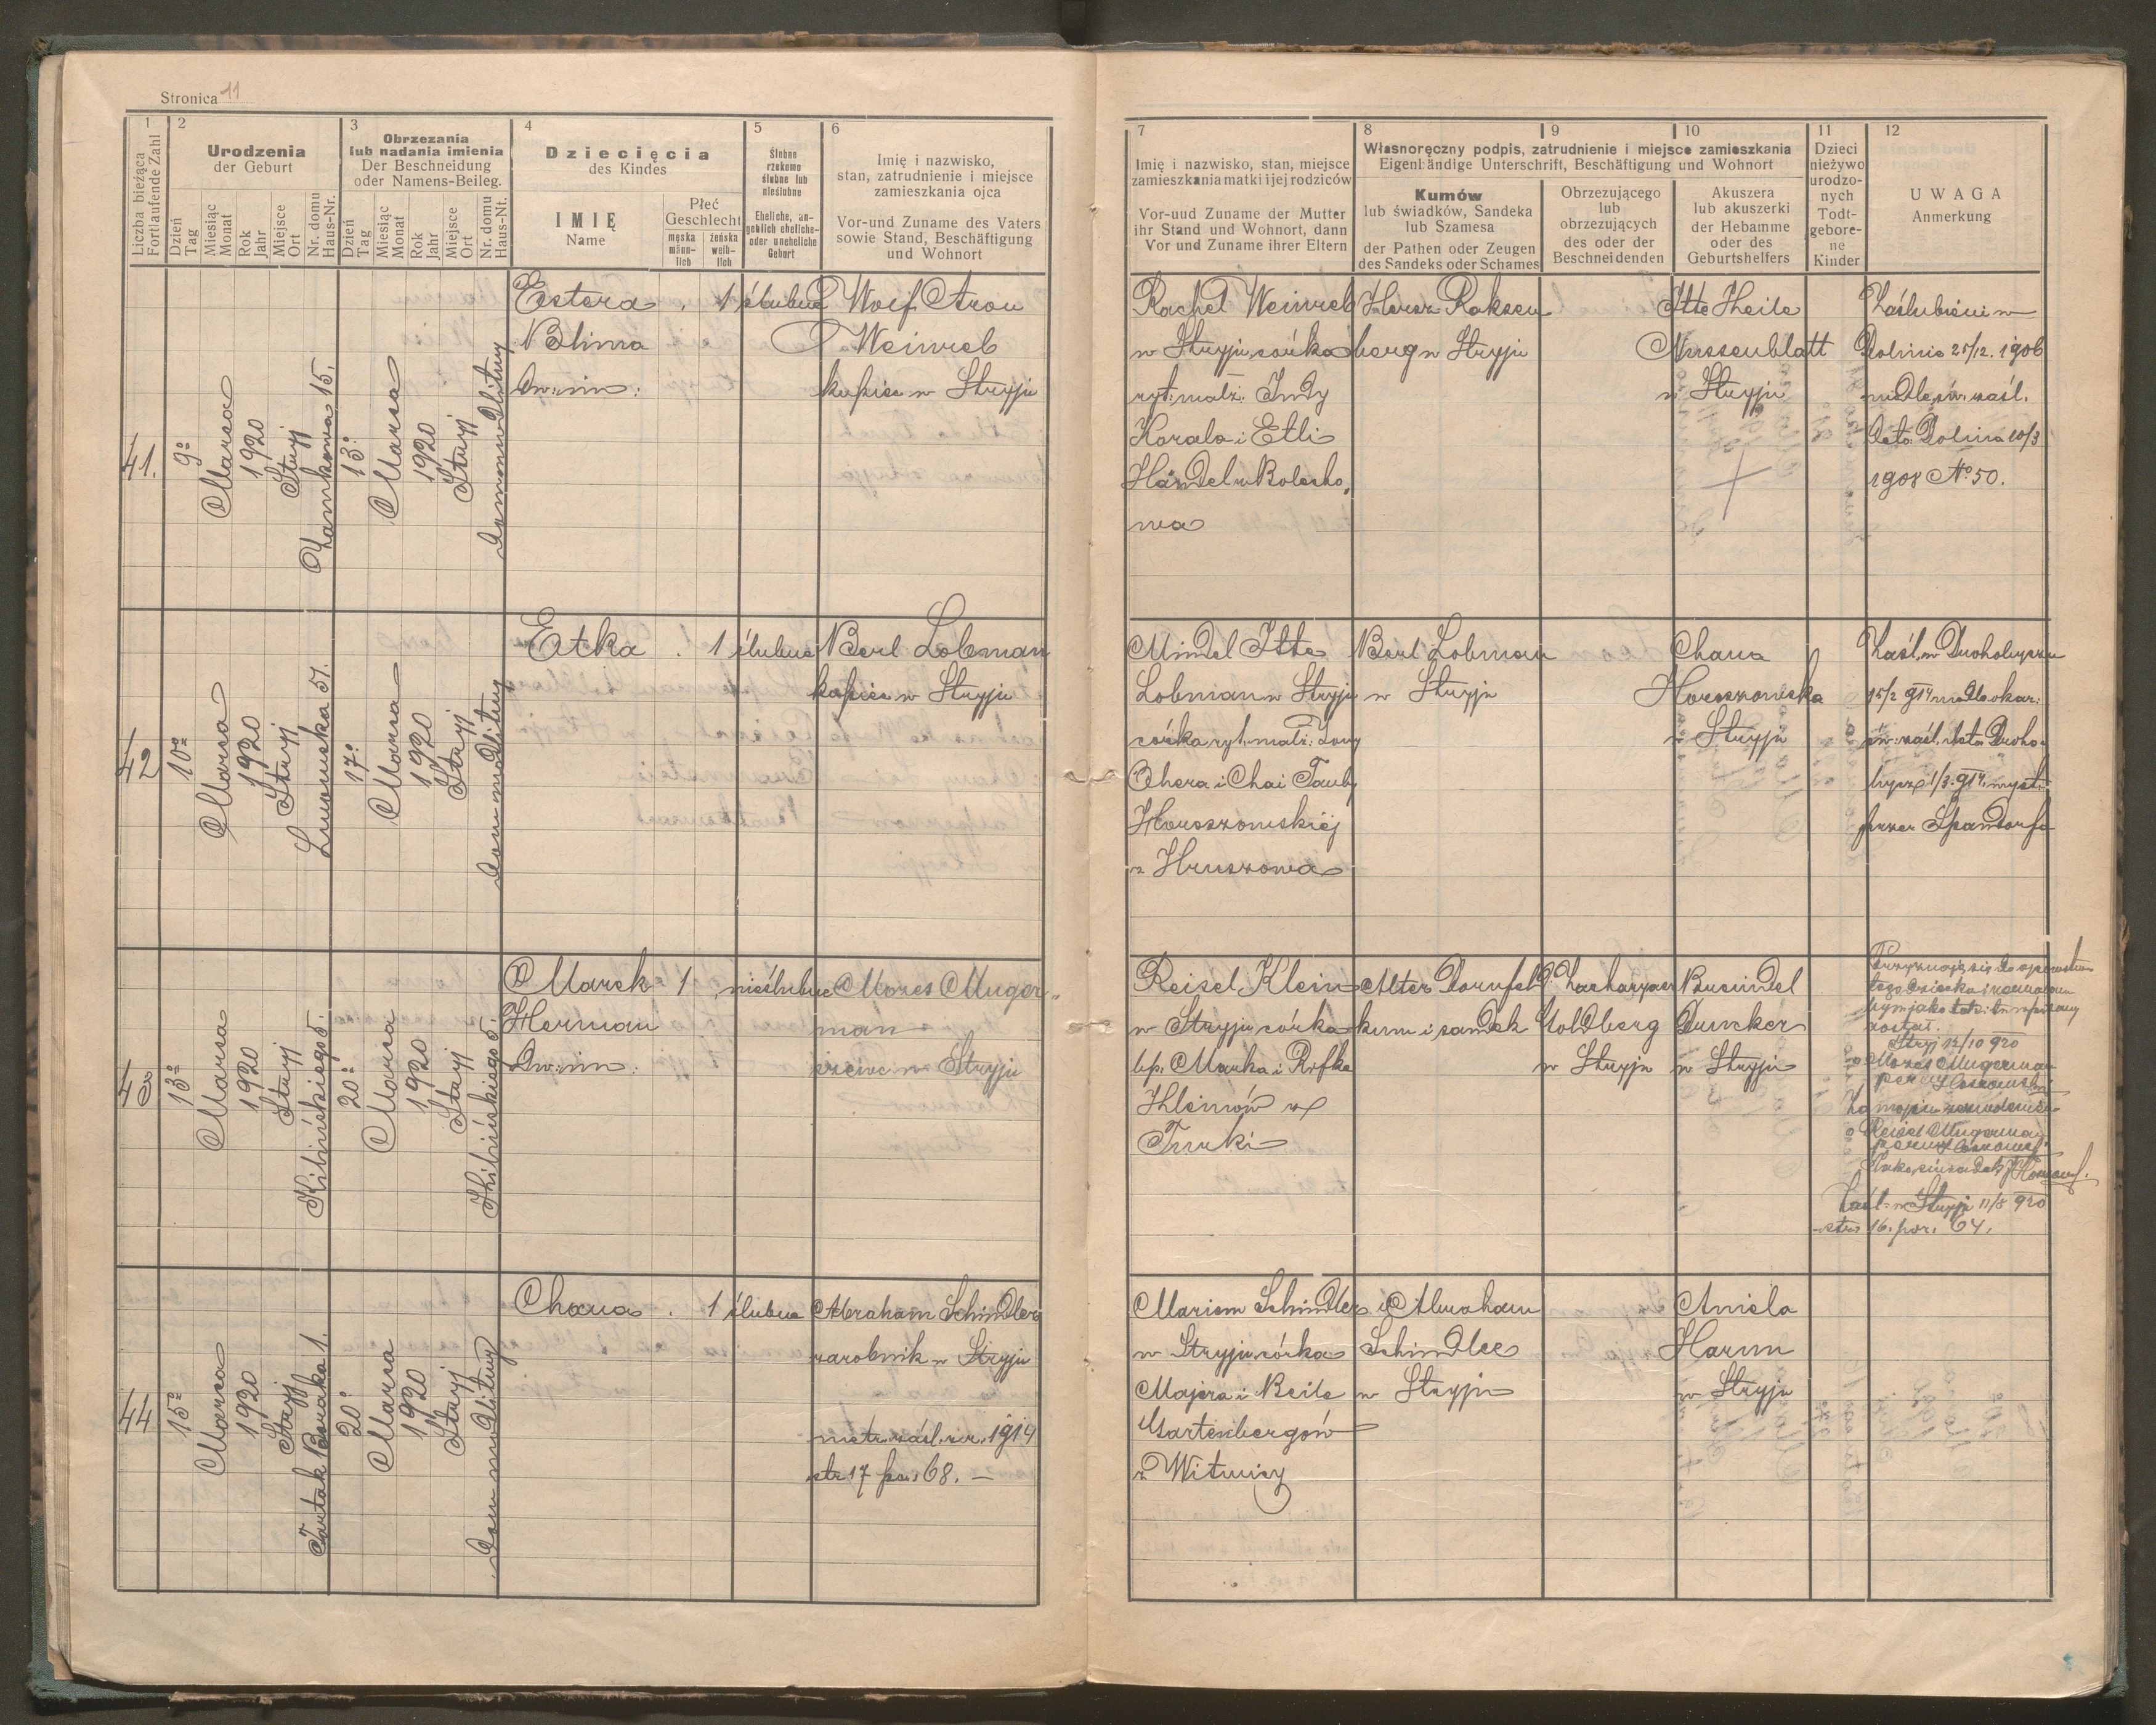 Stronica 11
1
Liczba bieżąca
Fortlaufende Zahl
2
Urodzenia
der Geburt
Dzień
Tag
Miesiąc
Monat
Rok
Jahr
Miejsce
Ort
Nr. domu
Haus-Nr.
3
Obrzezania
lub nadania imienia
Der Beschneidung
oder Namens-Beileg.
Dzień
Tag
Miesiąc
Monat
Rok
Jahr
Miejsce
Ort
Nr. domu
Haus-Nt.
4
Dziecięcia
des Kindes
IMIĘ
Name
Płeć
Geschlecht
męska
männ-
lich
żeńska
weib-
lich
5
Ślubne
rzekomo
ślubne lub
nieślubne
Eheliche, an-
geblich eheliche-
oder uneheliche
Geburt
6
Imię i nazwisko,
stan, zatrudnienie i miejsce
zamieszkania ojca
Vor-und Zuname des Vaters
sowie Stand, Beschäftigung
und Wohnort
7
Imię i nazwisko, stan, miejsce
zamieszkania matki i jej rodziców
Vor-uud Zuname der Mutter
ihr Stand und Wohnort, dann
Vor und Zuname ihrer Eltern
8 9 10
Własnoręczny podpis, zatrudnienie i miejsce zamieszkania
Eigenhändige Unterschrift, Beschäftigung und Wohnort
Kumów
lub świadków, Sandeka
lub Szamesa
der Pathen oder Zeugen
des Sandeks oder Schames
Obrzezującego
lub
obrzezujących
des oder der
Beschneidenden
Akuszera
lub akuszerki
der Hebamme
oder des
Geburtshelfers
11
Dzieci
nieżywo
urodzo-
nych
Todt-
gebore-
ne
Kinder
12
UWAGA
Anmerkung
41.
9º
Marca
1920
Stryj
Zamkowa 15.
13º
Marca
1920
Stryj
Dom modlitwy
Estera
Blima
Dw: im:
1
ślubne
Wolf Aron
Weinreb
kupiec w Stryju
Rachel Weinreb
w Stryju córka
ryt: małż:
Horala i Etli
Händel w Bolecho,
wa
Hersz Roksen
berg w Stryju
Itte Heile
Nussenblatt
w Stryju
Zaślubieni w
Dolinie 25/12. 1906
wedle św. zaśl.
dato Dolina 10/3
1908 Nº 50.
42
10º
Marca
1920
Stryj
Lwowska 51.
17º
Marca
1920
Stryj
Dom modlitwy
Etka
1
ślubne
Berl Lobman
kupiec w Stryju
Mindel Itte
Lobman w Stryju
córka ryt. małż:
Chera i Chai Tauby
Horoszowskiej
z Hruszowa
Berl Lobman
w Stryju
Chana
Horoszowska
w Stryju
Zaśl. w Drohobyczu
15/2 914 wedle okaz:
św: zaśl. dato Droho-
bycz 1/3. 914. wyst.
przez Spandorfa
43
13º
Marca
1920
Stryj
Kilińskiego 5.
20º
Marca
1920
Stryj
Kilińskiego 5.
Marek
Herman
Dw: im:
1
nieślubne
Mozes Muger-
man
szewc w Stryju
Reisel Klein
w Stryju córka
bp. Marka i Rifke
Kleinów z
Turki
Alter Dornfeld
kum i sandek
Zacharyasz
Goldberg
w Stryju
Breindel
Duncker
w Stryju
Przyznaję się do ojcostwa
tego dziecka i zezwalam
bym jako taki tu wpisany
został.
Stryj 12/10 920
Mozes Mugerman
Reisel Mugerman
Zaśl. w Stryju 11/8 920
str. 16. poz. 64.
44
15º
Marca
1920
Stryj
Tartak Boraka 1.
20º
Marca
1920
Stryj
Dom modlitwy
Chana
1
ślubne
Abraham Schindler
zarobnik w Stryju
metr. zaśl. 1914
str 17 poz. 68. —
Mariem Schindler
w Stryju córka
Majera i Beile
Gartenbergów
z Witwicy
Abraham
Schindler
w Stryju
Aniela
Harum
w Stryju